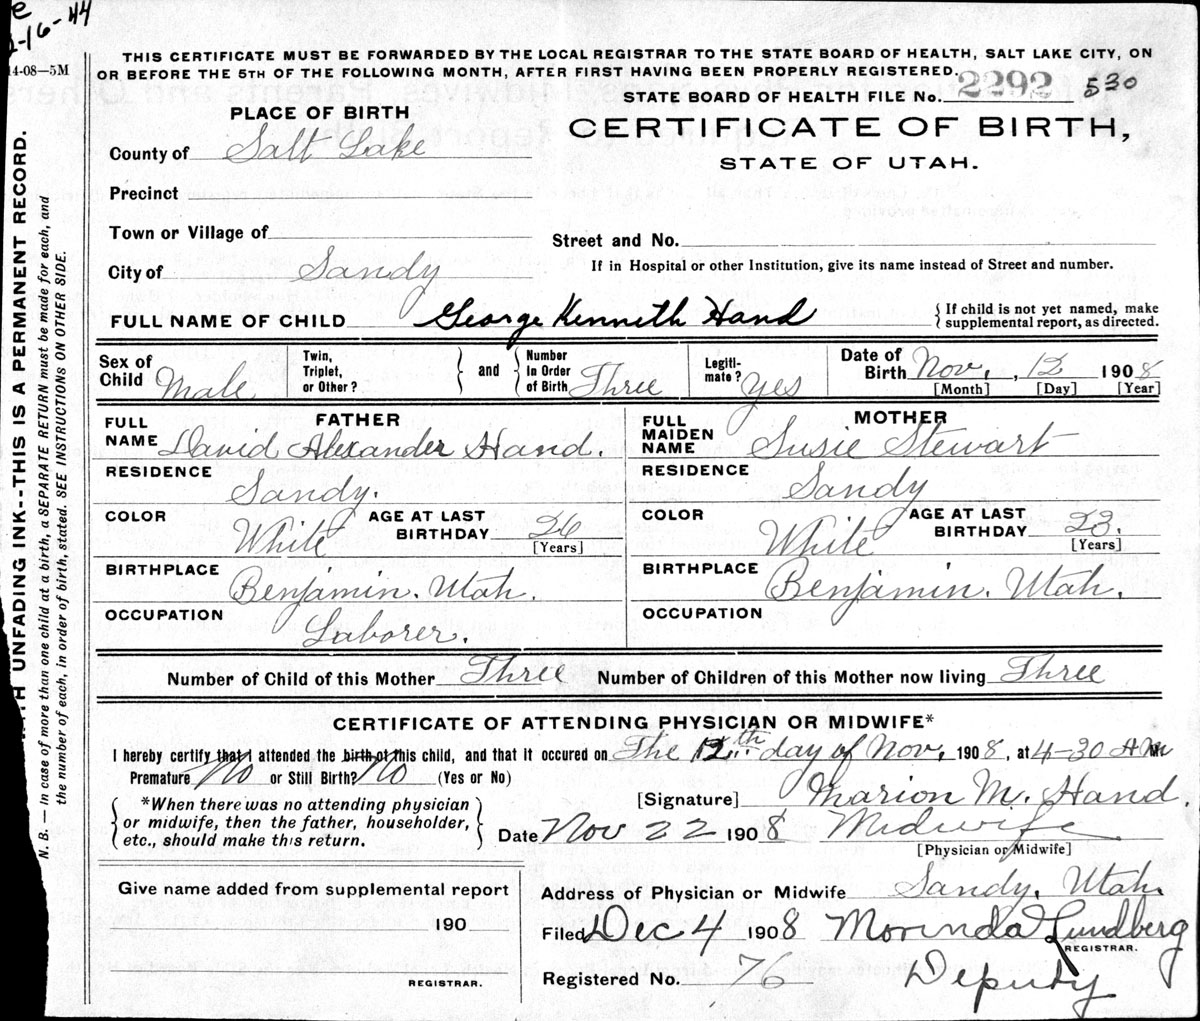 2-16-44
14-08—5M
THIS CERTIFICATE MUST BE FORWARDED BY THE LOCAL REGISTRAR TO THE STATE BOARD OF HEALTH, SALT LAKE CITY, ON
OR BEFORE THE 5TH OF THE FOLLOWING MONTH, AFTER FIRST HAVING BEEN PROPERLY REGISTERED.
STATE BOARD OF HEALTH FILE No. 2292 530
PLACE OF BIRTH
CERTIFICATE OF BIRTH,
STATE OF UTAH.
County of Salt Lake
Precinct
Town or Village of
Street and No.
City of Sandy
If in Hospital or other Institution, give its name instead of Street and number.
FULL NAME OF CHILD George Kenneth Hand { If child is not yet named, make supplemental report, as directed.
Sex of Child Male
Twin, Triplet, or Other? } and { Number In Order of Birth Three
Legiti-mate? Yes
Date of Birth Nov., 12 1908
[Month] [Day] [Year]
FATHER
FULL NAME David Alexander Hand.
MOTHER
FULL MAIDEN NAME Susie Stewart
RESIDENCE Sandy.
RESIDENCE Sandy
COLOR White AGE AT LAST BIRTHDAY 26 [Years]
COLOR White AGE AT LAST BIRTHDAY 23. [Years]
BIRTHPLACE Benjamin. Utah.
BIRTHPLACE Benjamin. Utah.
OCCUPATION Laborer.
OCCUPATION
Number of Child of this Mother Three Number of Children of this Mother now living Three
CERTIFICATE OF ATTENDING PHYSICIAN OR MIDWIFE*
I hereby certify that I attended the birth of this child, and that it occured on The 12th day of Nov, 1908, at 4-30 A M
Premature No or Still Birth? No (Yes or No)
{ *When there was no attending physician
or midwife, then the father, householder,
etc., should make this return. }
[Signature] Marion M. Hand.
Date Nov 22 1908 Midwife
[Physician or Midwife]
Give name added from supplemental report
190
REGISTRAR.
Address of Physician or Midwife Sandy, Utah.
Filed Dec 4 1908 Morinda Lundberg
REGISTRAR.
Registered No. 76 Deputy
UNFADING INK--THIS IS A PERMANENT RECORD.
N. B. — In case of more than one child at a birth, a SEPARATE RETURN must be made for each, and
the number of each, in order of birth, stated. SEE INSTRUCTIONS ON OTHER SIDE.